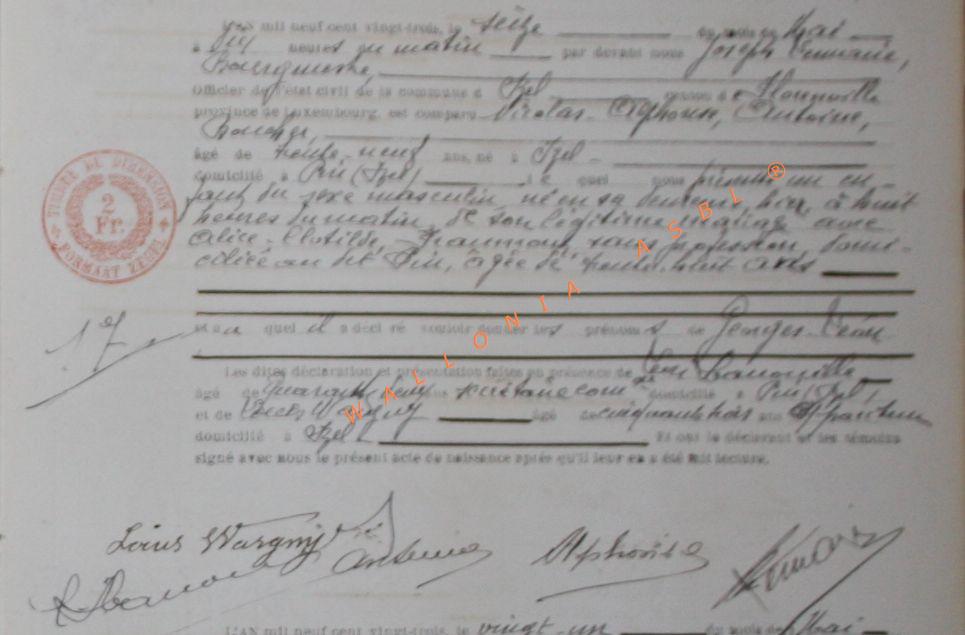 L'AN mil neuf cent vingt-trois, le seize du mois de Mai
à dix heures du matin par devant nous Joseph
Bourgmestre,
Officier de l'état civil de la commune d Izel canton de Florenville
province de Luxembourg, est comparu Nicolas Alphonse, Antoine,
Boucher,
âgé de trente-neuf ans, né à Izel
domicilié à Pin (Izel) le quel nous présente un en-
fant du sexe masculin né en sa demeure, hier, à huit
heures du matin, de son légitime mariage avec
Alice Clotilde, sans profession, domi-
ciliée au dit Pin, âgée de trente-huit ans
17
et au quel il a décl ré vouloir donner les prénoms de Georges
Les dites déclaration et présentation faites en présence de
âgé de quarante ans domicilié à Pin (Izel)
et de Louis Wargny âgé de cinquante ans
domicilié à Izel Et ont le déclarant et les témoins
signé avec nous le présent acte de naissance après qu'il leur en a été fait lecture.
TIMBRE DE DIMENSION
2
Fr.
FORMAAT ZEGEL
WALLONIA ASBL ®
Louis Wargny
Antoine Alphonse
L'AN mil neuf cent vingt-trois, le vingt-un du mois de Mai